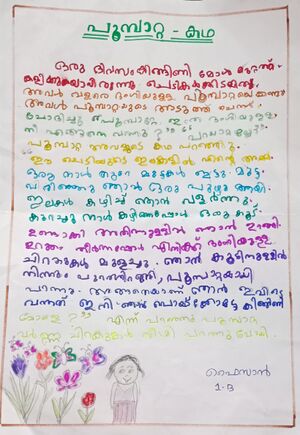 പൂമ്പാറ്റ - കഥ
ഒരു ദിവസം കിങ്ങിണി മോൾ മുറ്റത്ത്
കളിക്കുകയായിരുന്നു ചെടികൾക്കിടയിൽ
അവൾ വളരെ ഭംഗിയുള്ള പൂമ്പാറ്റയെ കണ്ടു
അവൾ പൂമ്പാറ്റയുടെ അടുത്ത് ചെന്ന്
ചോദിച്ചു പൂമ്പാറ്റേ, ഇത്ര ഭംഗിയുള്ള
നീ എങ്ങനെ വന്നു ? പറയാമല്ലോ
പൂമ്പാറ്റ അവളുടെ കഥ പറഞ്ഞു.
ഈ ചെടിയുടെ ഇലകളിൽ എന്റെ അമ്മ
ഒരു നാൾ കുറേ മുട്ടകൾ ഇട്ടു. മുട്ട
വിരിഞ്ഞു ഞാൻ ഒരു പുഴു ആയി.
ഇലകൾ കഴിച്ച് ഞാൻ വളർന്നു.
കുറച്ചു നാൾ കഴിഞ്ഞപ്പോൾ ഒരു കൂട്
ഉണ്ടാക്കി അതിനുള്ളിൽ ഞാൻ ഉറങ്ങി
ഉറക്കം തീർന്നപ്പോൾ എനിക്ക് ഭംഗിയുള്ള
ചിറകുകൾ മുളച്ചു. ഞാൻ കൂടിനുള്ളിൽ
നിന്നും പുറത്തിറങ്ങി, പൂമ്പാറ്റയായി
പറന്നു. അങ്ങനെയാണ് ഞാൻ ഇവിടെ
വന്നത് ഇനി ഞാൻ പോയ്ക്കോട്ടെ കിങ്ങിണി
മോളെ ? എന്ന് പറഞ്ഞു പൂമ്പാറ്റ
വർണ്ണ ചിറകുകൾ വീശി പറന്നു പോയി.
ഫൈസാൻ
1-B